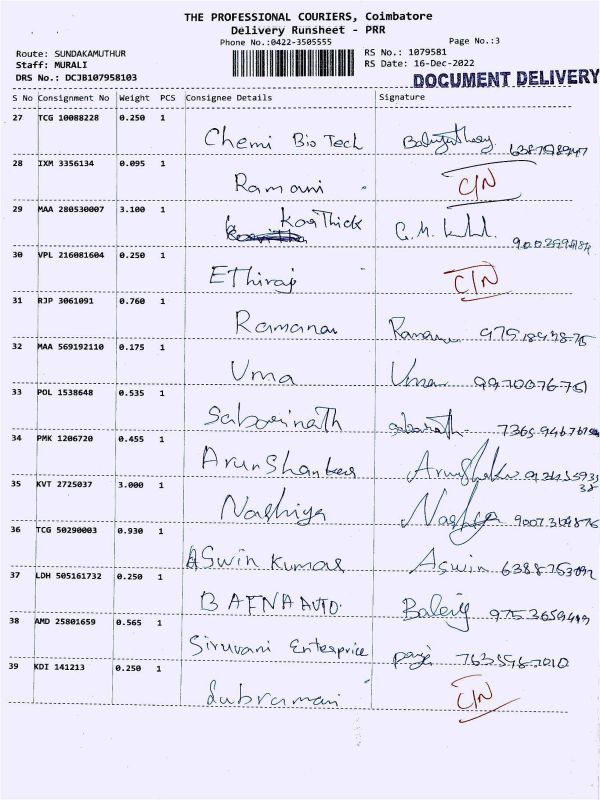 THE PROFESSIONAL COURIERS, Coimbatore
Delivery Runsheet - PRR
Phone No.:0422-3505555
Page No.:3
Route: SUNDAKAMUTHUR
RS No.: 1079581
Staff: MURALI
RS Date: 16-Dec-2022
DRS No.: DCJB107958103
DOCUMENT DELIVERY
S No Consignment No Weight PCS Consignee Details Signature
27 TCG 10088228 0.250 1
Chemi Bio Tech
28 IXM 3356134 0.095 1
Ramani C/N
29 MAA 280530007 3.100 1
Karthick G.M.
30 VPL 216081604 0.250 1
EThiraj C/N
31 RJP 3061091 0.760 1
Ramanan
32 MAA 569192110 0.175 1
Uma Uma
33 POL 1538648 0.535 1
Sabarinath
34 PMK 1206720 0.455 1
ArunShankar
35 KVT 2725037 3.000 1
Nashiya
36 TCG 50290003 0.930 1
ASwin Kumar Aswin
37 LDH 505161732 0.250 1
BAFNA AUTO.
38 AMD 25801659 0.565 1
Siruvani Enterprice
39 KDI 141213 0.250 1
Subramani C/N